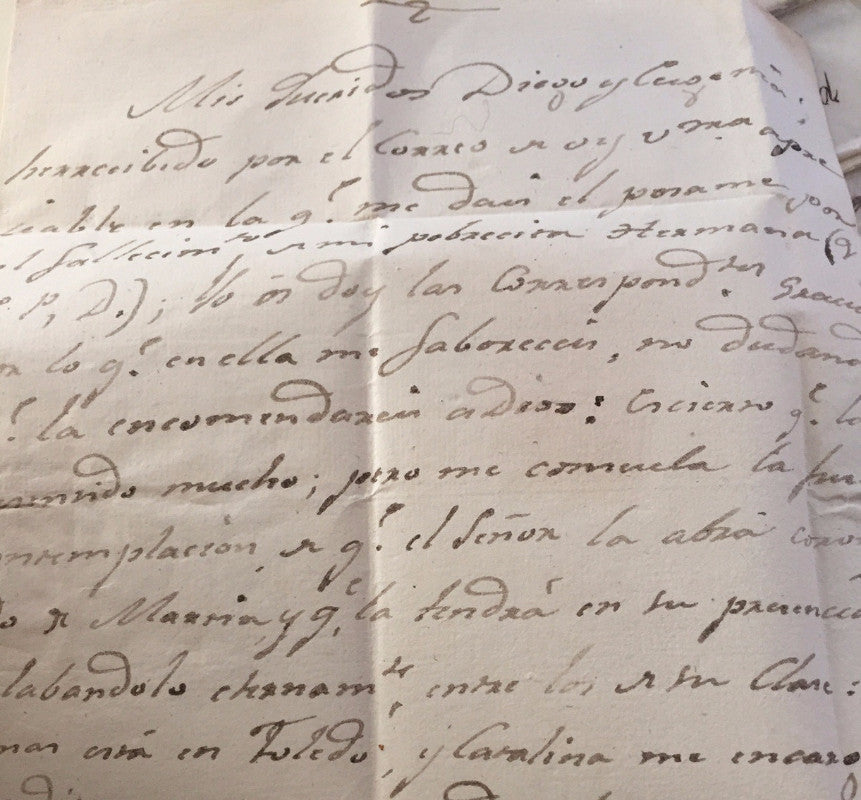 Mis queridos Diego y Eugenia:
he rrecibido por el Correo de oy vmra apre
ciable en la q.e me dais el pesame por
el fallecim.to de mi pobrecica Hermana (q
e. p, D.); Yo ôs doy las Correspond.tes Graci
or lo q.e en ella me faboreceis, no dudand
q.e la encomendareis a Dios: Es cierto q.e lo
sentido mucho; pero me consuela la
ontemplacion de q.e el Señor la abrá coron
do de Martir, y q.e la tendrá en su presencia
alabandolo eternam.te, entre los de su Clase:
mas está en Toledo, y Catalina me encarg